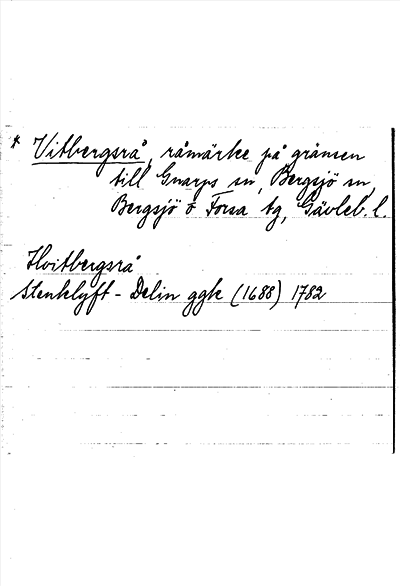 * Vitbergsrå, råmärke på gränsen
till Gnarps sn, Bergsjö sn,
Bergsjö o Forsa tg, Gävleb. l.
Hvitbergsrå
Stenklyft - Delin ggk (1688) 1782